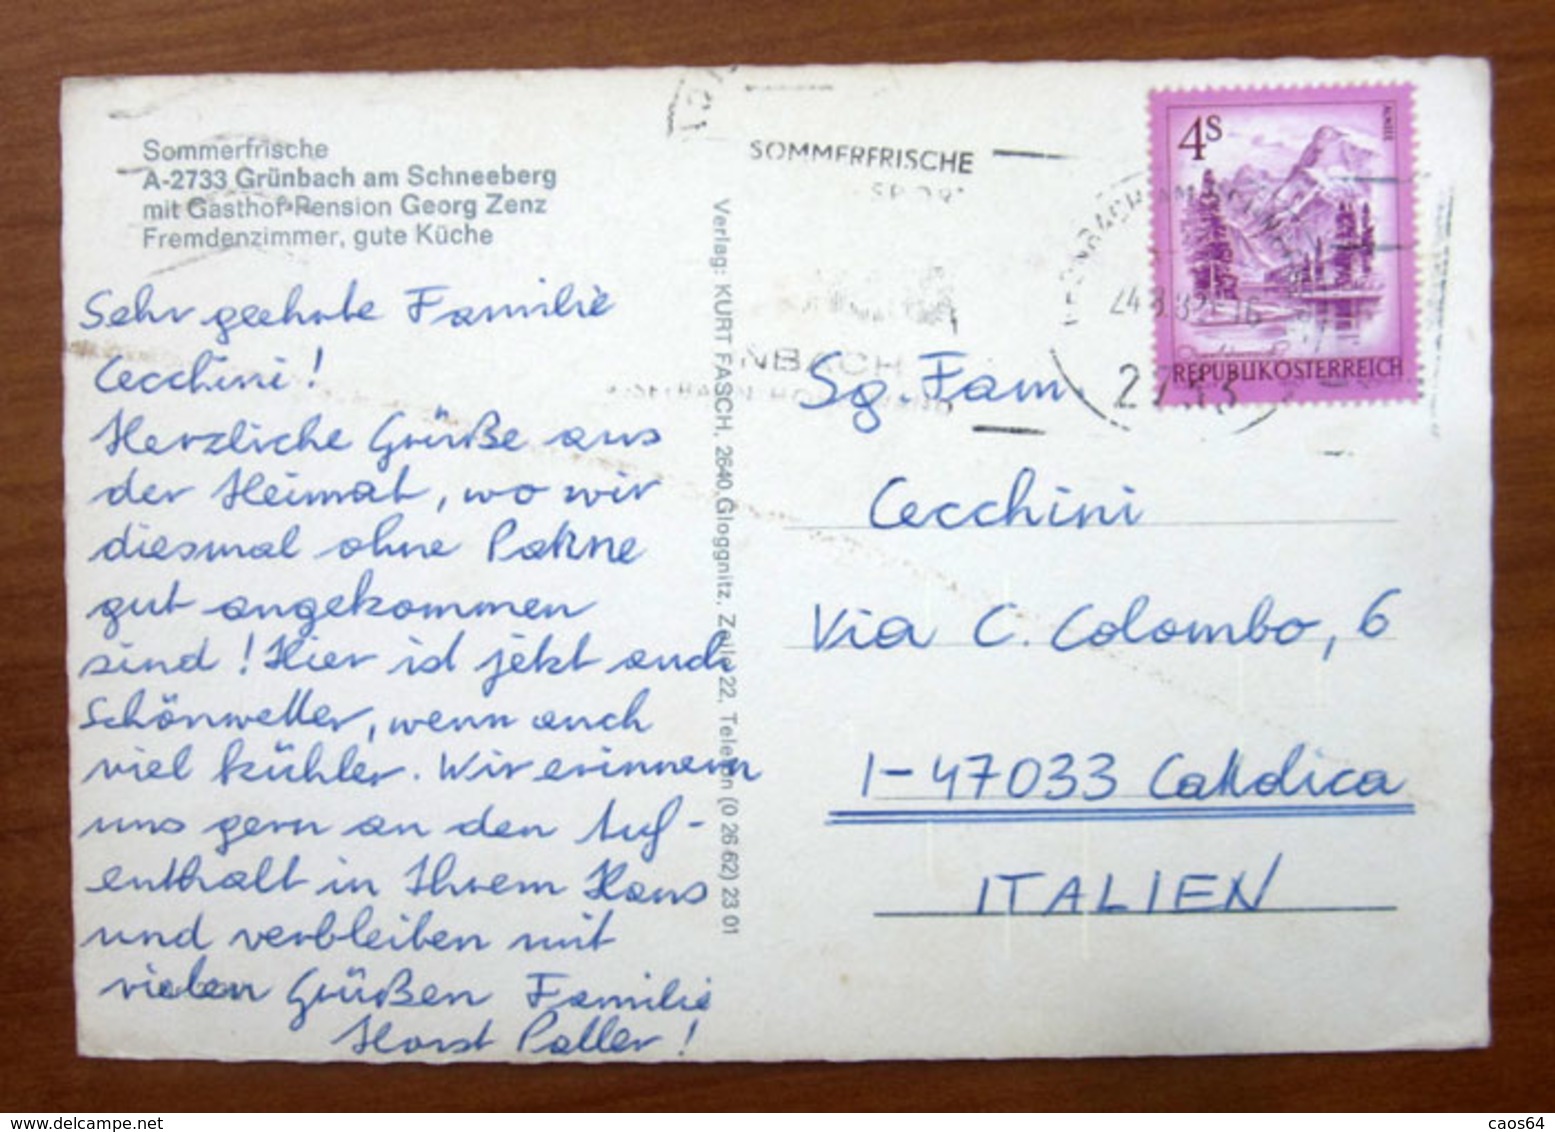 Sommerfrische
A-2733 Grünbach am Schneeberg
mit Gasthof-Pension Georg Zenz
Fremdenzimmer, gute Küche
Sehr geehrte Familie
Cecchini!
Herzliche Grüße aus
der Heimat, wo wir
diesmal ohne Panne
gut angekommen
sind! Hier ist jetzt auch
Schönwetter, wenn auch
viel kühler. Wir erinnern
uns gern an den Auf-
enthalt in Ihrem Haus
und verbleiben mit
vielen Grüßen Familie
Horst Paller!
Verlag: KURT FASCH, 2640 Gloggnitz, Zeile 22, Telefon (0 26 62) 23 01
SOMMERFRISCHE
SPORT
NBACH
4S
REPUBLIK ÖSTERREICH
2733
Sg. Fam.
Cecchini
Via C. Colombo, 6
I-47033 Cattolica
ITALIEN
www.delcampe.net
caos64